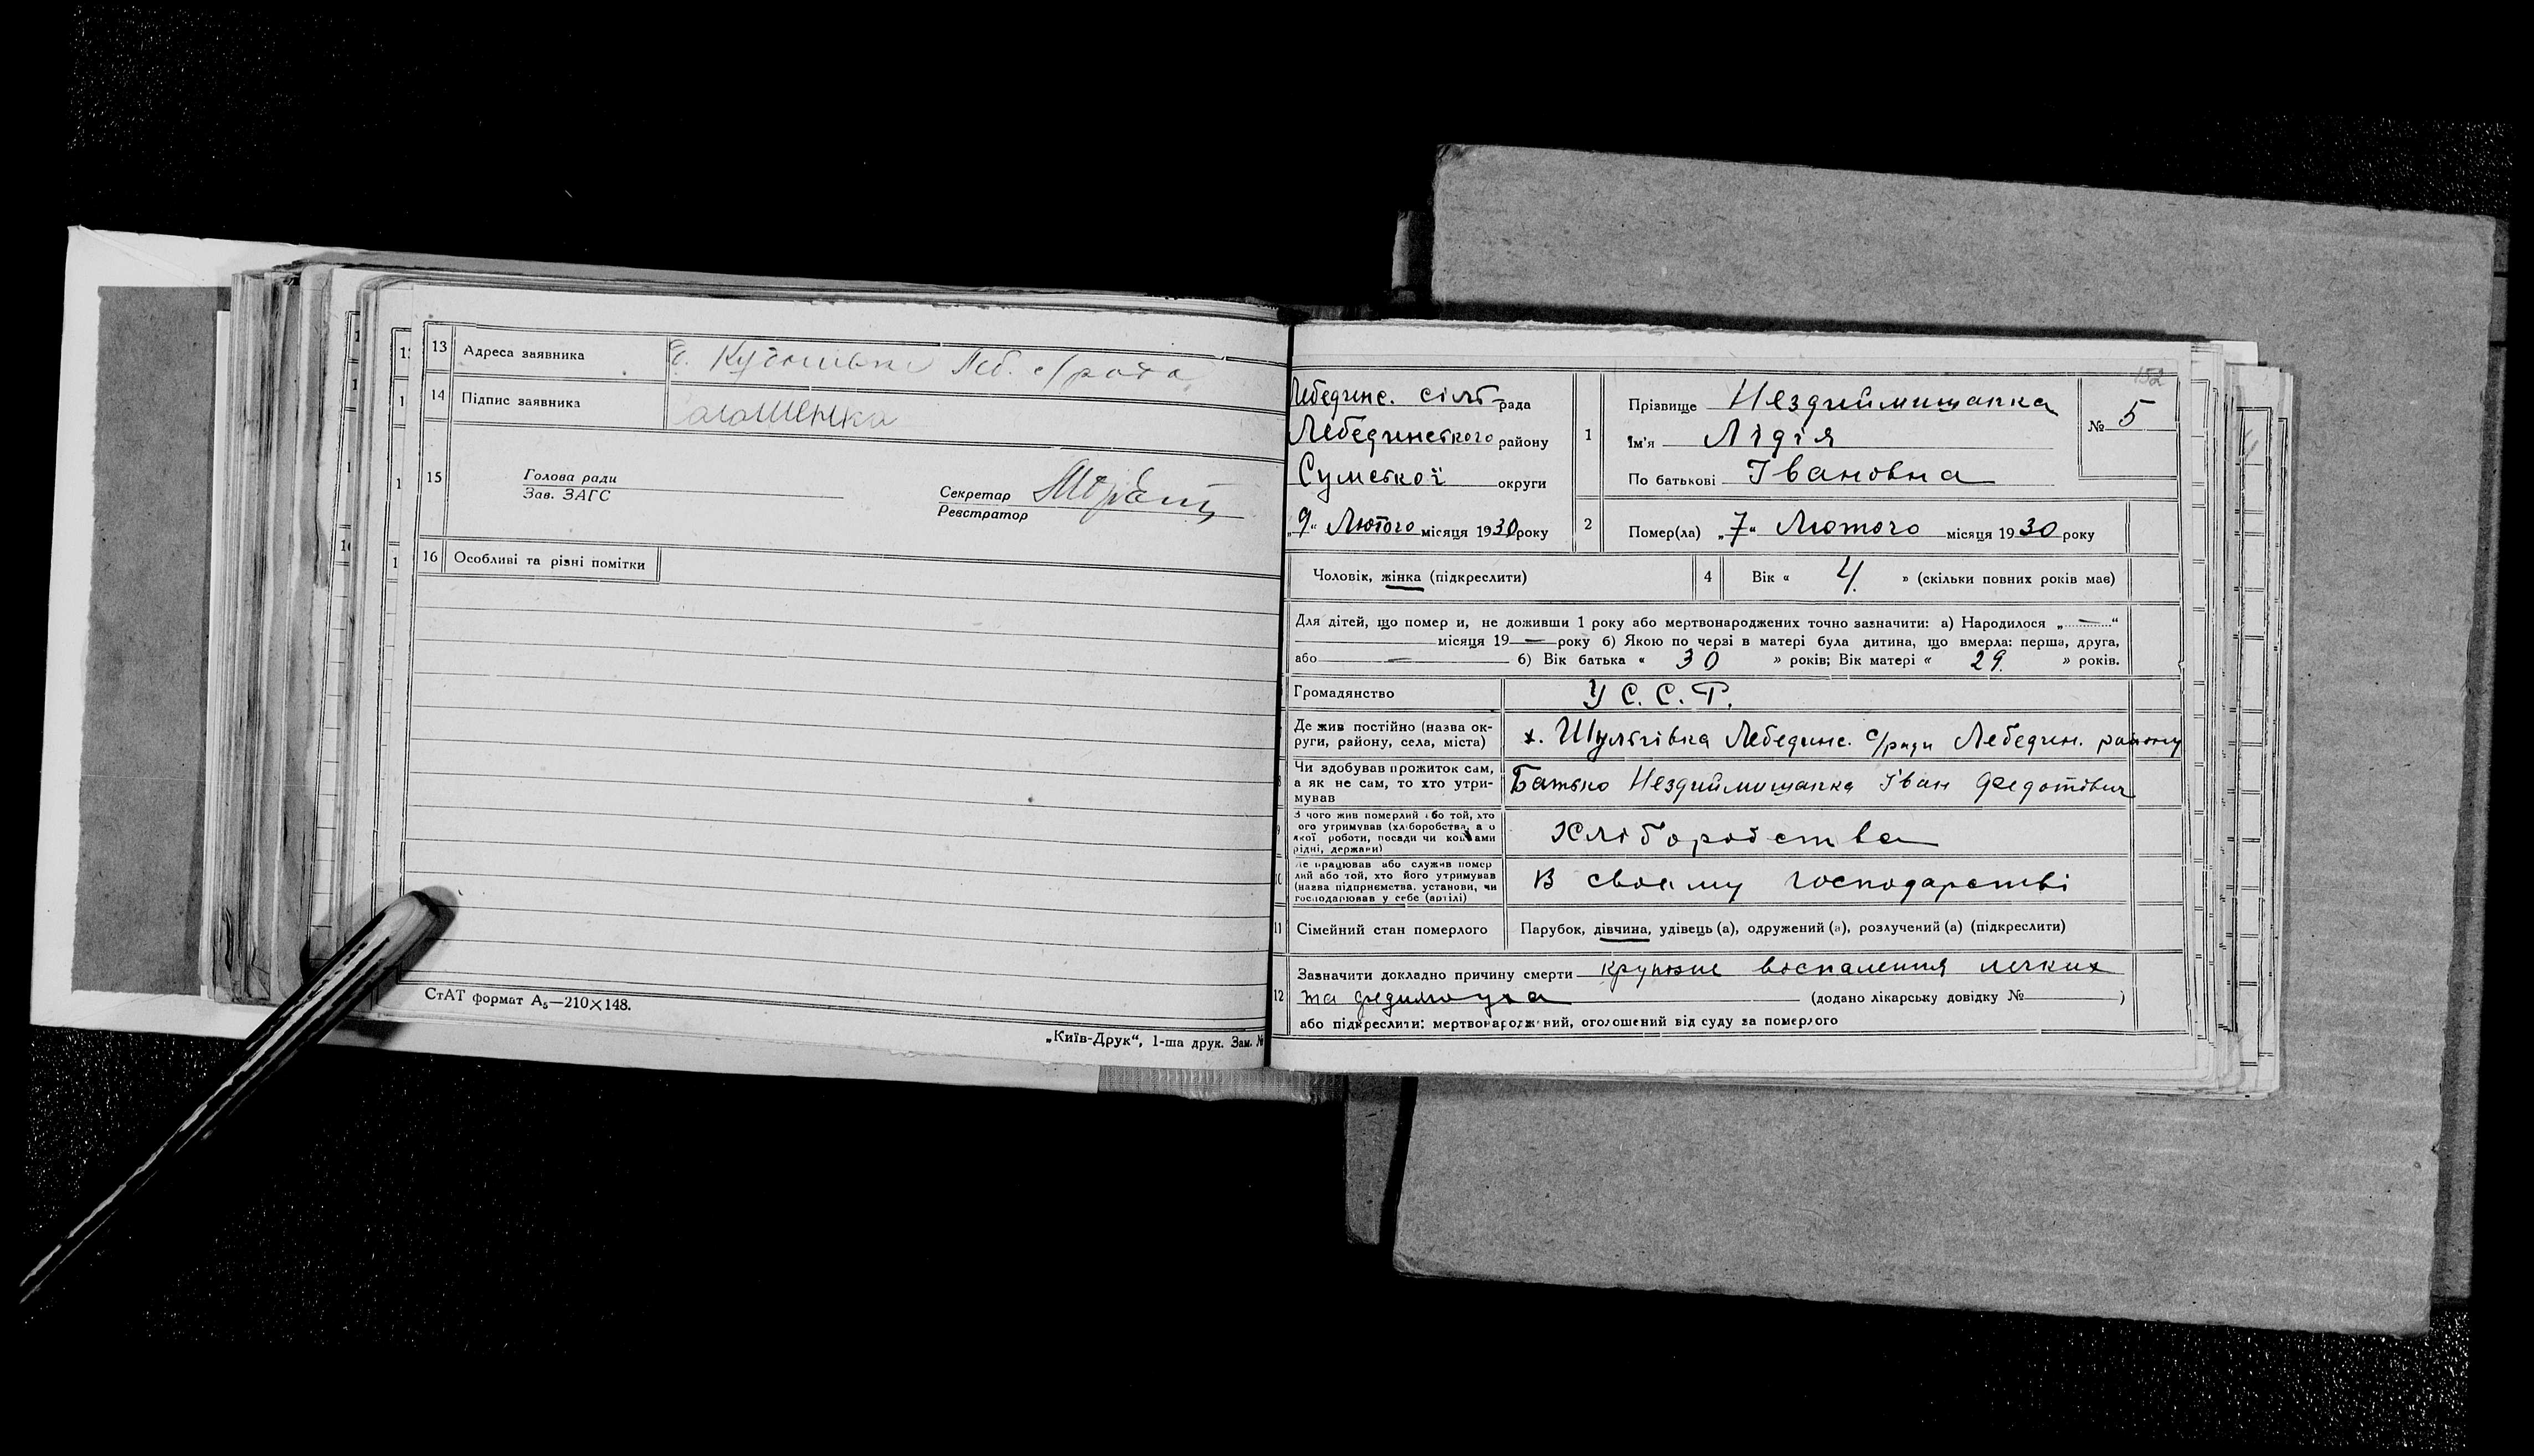 13 Адреса заявника Леб. с/рада
14 Підпис заявника
15 Голова ради
Зав. ЗАГС
Секретар
Реєстратор
16 Особливі та різні помітки
СтАТ формат А₅—210×148.
„Київ-Друк“, 1-ша друк. Зам. №
152
Лебединс. сільрада
Лебединського району
Сумської округи
„9“ Лютого місяця 1930 року
1 Прізвище Нездийминщапка
Ім'я Лідія
По батькові Івановна
№ 5
2 Помер(ла) „7“ Лютого місяця 1930 року
Чоловік, жінка (підкреслити)
4 Вік « 4 » (скільки повних років має)
Для дітей, що помер и, не доживши 1 року або мертвонароджених точно зазначити: а) Народилося „—“
місяця 19 — року б) Якою по черзі в матері була дитина, що вмерла: перша, друга,
або — б) Вік батька « 30 » років; Вік матері « 29 » років.
Громадянство У С. С. Р.
Де жив постійно (назва ок-
руги, району, села, міста) х. Шульгівка Лебединс. с/ради Лебедин. району
Чи здобував прожиток сам,
а як не сам, то хто утри-
мував Батько Нездийминщапка Іван Федотович
З чого жив померлий або той, хто
ого утримував (хліборобства, а о
якої роботи, посади чи коштами
рідні, держави) Хліборобства
Де працював або служив помер
лий або той, хто його утримував
(назва підприємства, установи, чи
господарював у себе (артілі) В своему господарстві
11 Сімейний стан померлого Парубок, дівчина, удівець (а), одружений (а), розлучений (а) (підкреслити)
12 Зазначити докладно причину смерти крупозне воспалення легких
та (додано лікарську довідку № )
або підкреслити: мертвонароджений, оголошений від суду за померлого